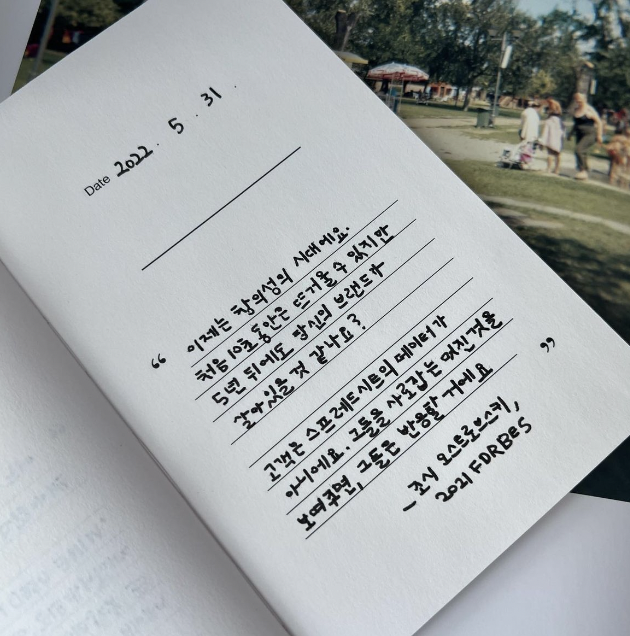 Date 2022. 5. 31.
“ 이제는 창의성의 시대예요.
처음 10초 동안은 뜨거울 수 있지만
5년 뒤에도 당신의 브랜드가
살아있을 것 같나요?
고객은 스프레드시트의 데이터가
아니에요. 그들을 사로잡는 멋진 것을 ”
보여주면, 그들은 반응할 거예요
- 조쉬 오스트로브스키,
2021 FORBES